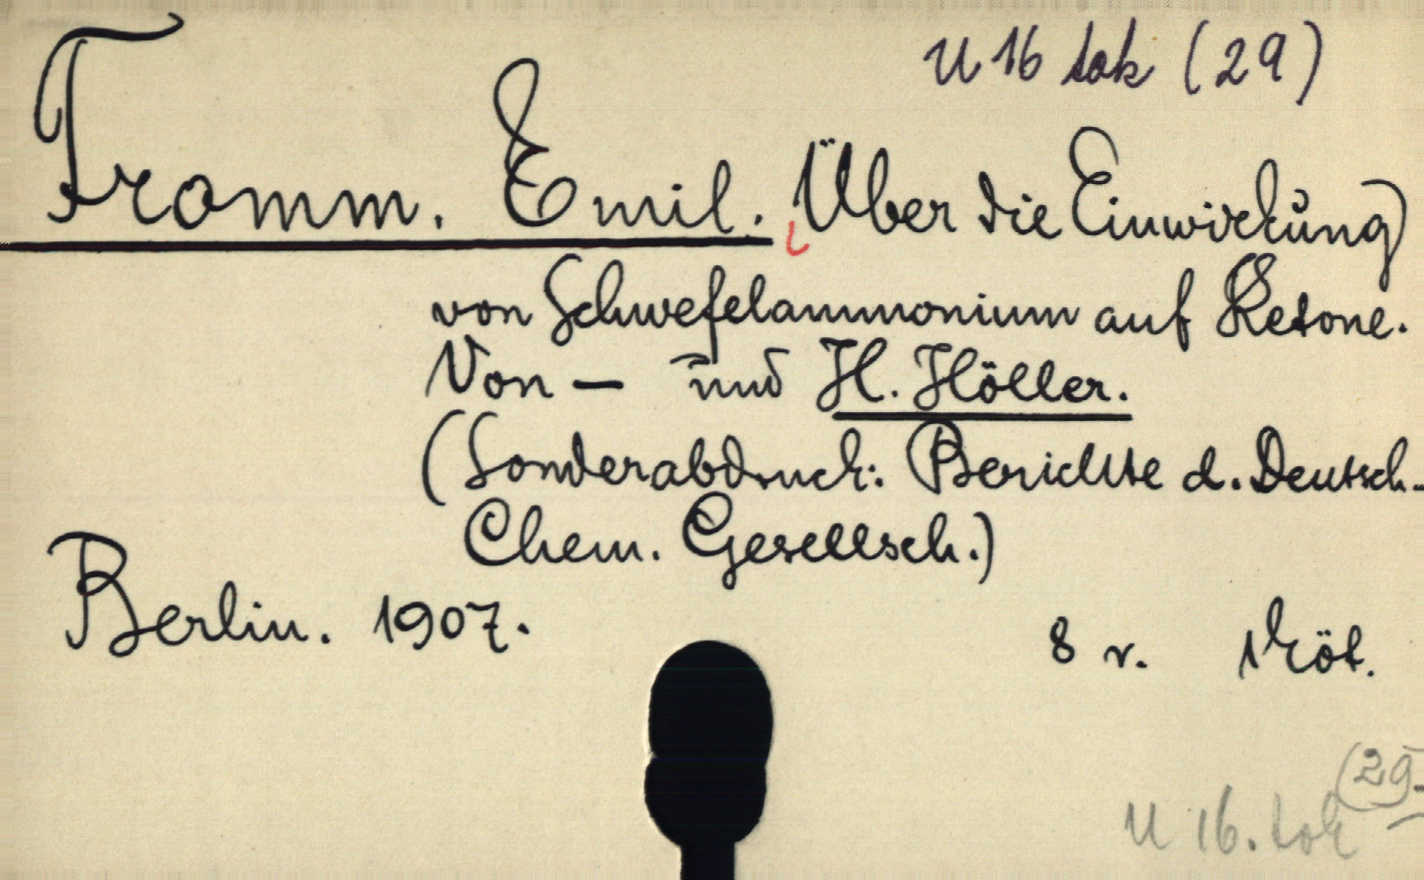 U 16 tok (29)
Fromm. Emil. Über die Einwirkung
von Schwefelammonium auf Ketone.
Von — und H. Höller.
(Sonderabdruck: Berichte d. Deutsch.
Chem. Gesellsch.)
Berlin. 1907.
8 r. 1 köt.
(29.
U 16. tok